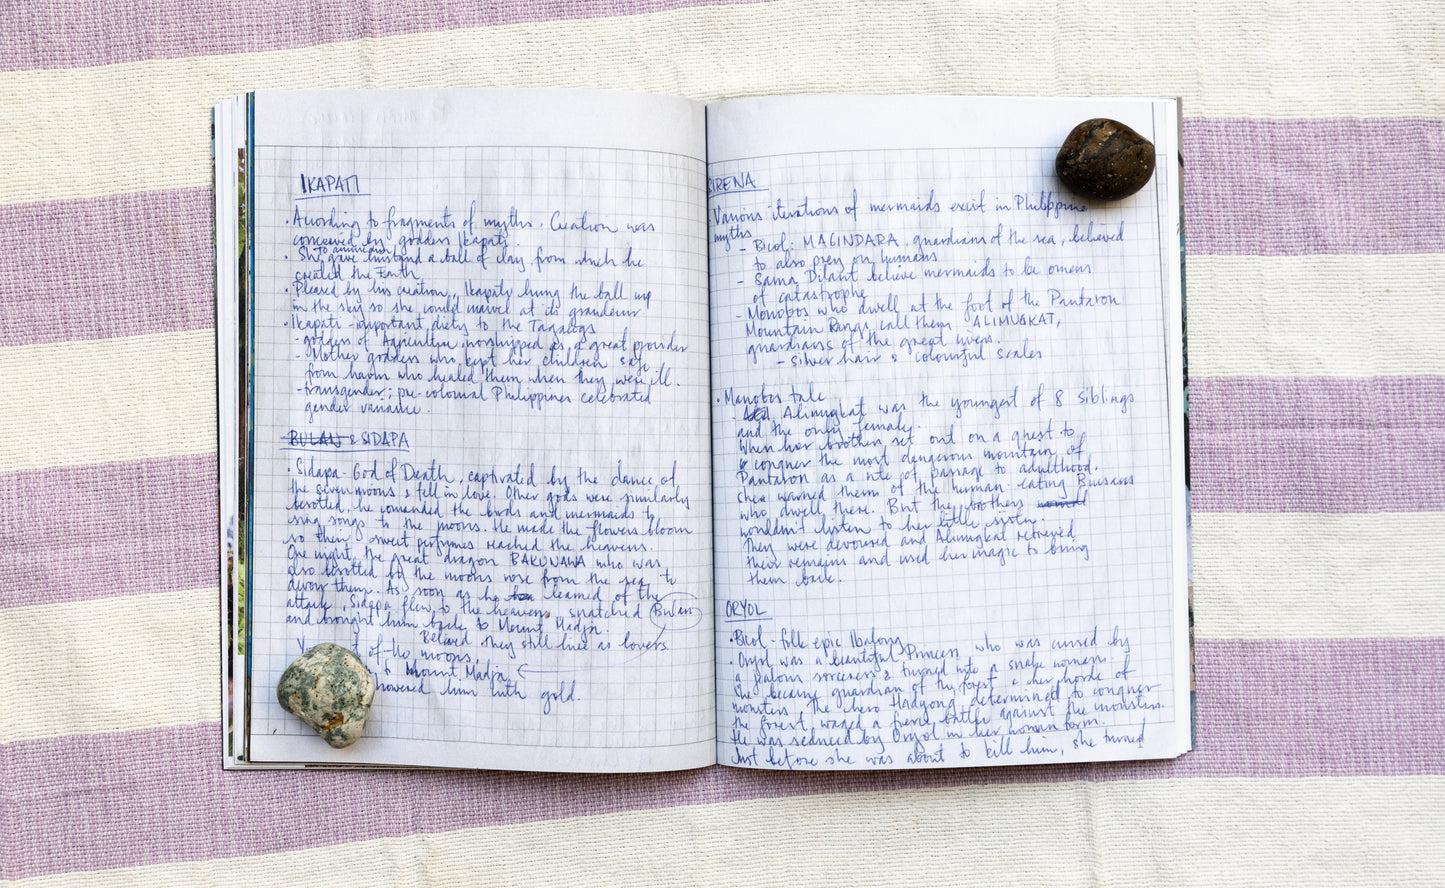 IKAPATI
• According to fragments of myths. Creation was
conceived by goddess Ikapati.
to amihan
• She gave husband a ball of clay from which he
created the Earth
• Pleased by his creation, Ikapati hung the ball up
in the sky so she could marvel at its grandeur
• Ikapati - important diety to the Tagalogs
- goddess of Agriculture, worshipped as a great provider
- Mother goddess who kept her children safe
from harm who healed them when they were ill.
- transgender; pre-colonial Philippines celebrated
gender variance.
BULAN & SIDAPA
• Sidapa - God of Death, captivated by the dance of
the seven moons & fell in love. Other gods were similarly
besotted, he comanded the birds and mermaids to
sing songs to the moons. He made the flowers bloom
so their sweet perfumes reached the heavens.
One night, the great dragon BAKUNAWA who was
also besotted by the moons rose from the sea to
devour them. As soon as he learned of the
attack, Sidapa flew to the heavens, snatched Bulan
and brought him back to Mount Madja.
Believed they still live as lovers.
of the moons,
to Mount Madja
showered him with gold.
SIRENA
Various iterations of mermaids exist in Philippine
myths
- Bicol: MAGINDARA, guardians of the sea, believed
to also prey on humans
- Sama Dilaut believe mermaids to be omens
of catastrophe
- Monobos who dwell at the foot of the Pantaron
Mountain Range call them ALIMUGKAT,
guardians of the great rivers.
- silver hair & colourful scales
• Manobos tale
- Alimugkat was the youngest of 8 siblings
and the only female.
When her brothers set out on a quest to
conquer the most dangerous mountain of
Pantaron as a rite of passage to adulthood.
She warned them of the human-eating Busaus
who dwell there. But the brothers
wouldn't listen to her little sister.
They were devoured and Alimugkat retrieved
their remains and used her magic to bring
them back.
ORYOL
• Bicol - folk epic Ibalong
• Oryol was a beautiful Princess who was cursed by
a jealous sorceress & turned into a snake woman.
She became guardian of the forest & her horde of
monsters. The hero Hadyong determined to conquer
the forest, waged a fierce battle against the monsters.
He was seduced by Oryol in her human form.
Just before she was about to kill him, she turned